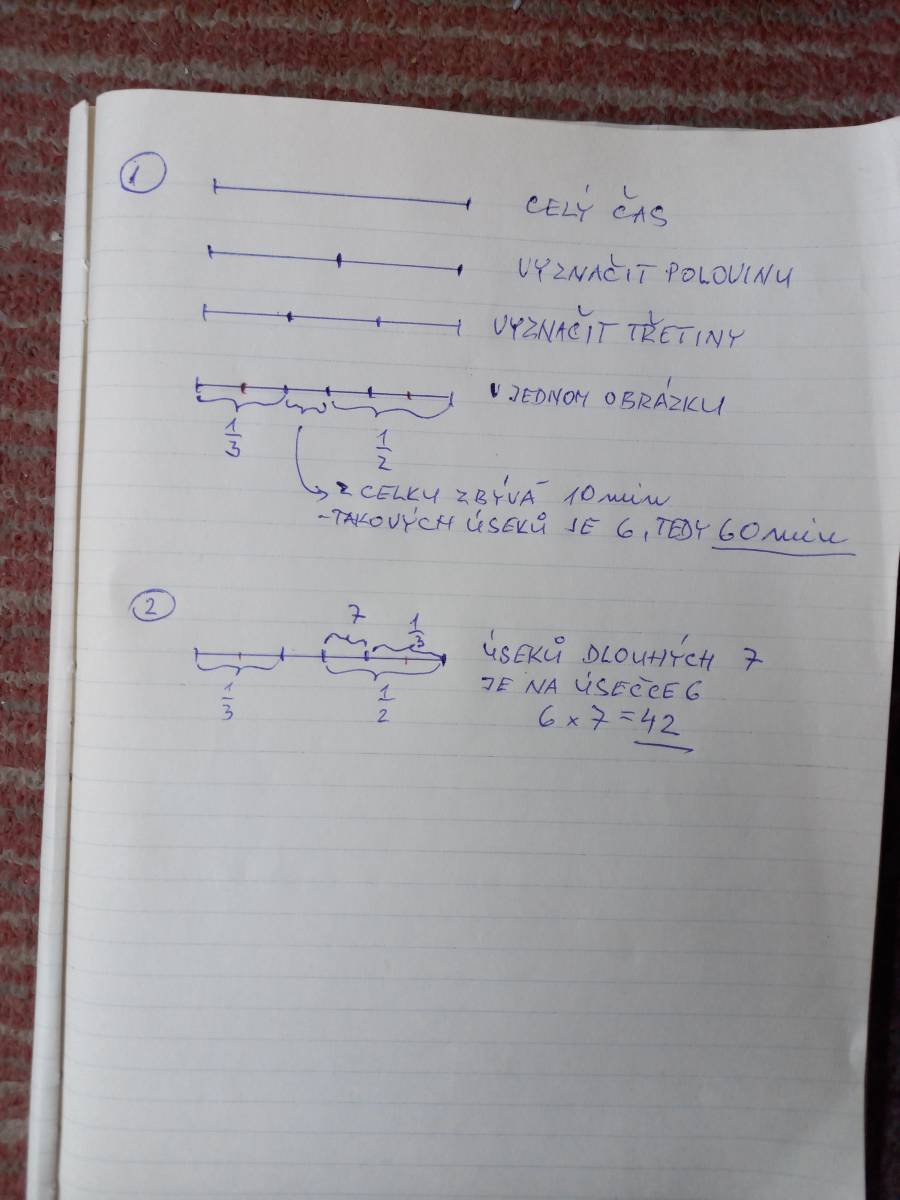 1
CELÝ ČAS
VYZNAČIT POLOVINU
VYZNAČIT TŘETINY
V JEDNOM OBRÁZKU
1/3
1/2
Z CELKU ZBÝVÁ 10 min
- TAKOVÝCH ÚSEKŮ JE 6, TEDY 60 min
2
7 1/3
ÚSEKŮ DLOUHÝCH 7
1/3 1/2
JE NA ÚSEČCE 6
6 x 7 = 42